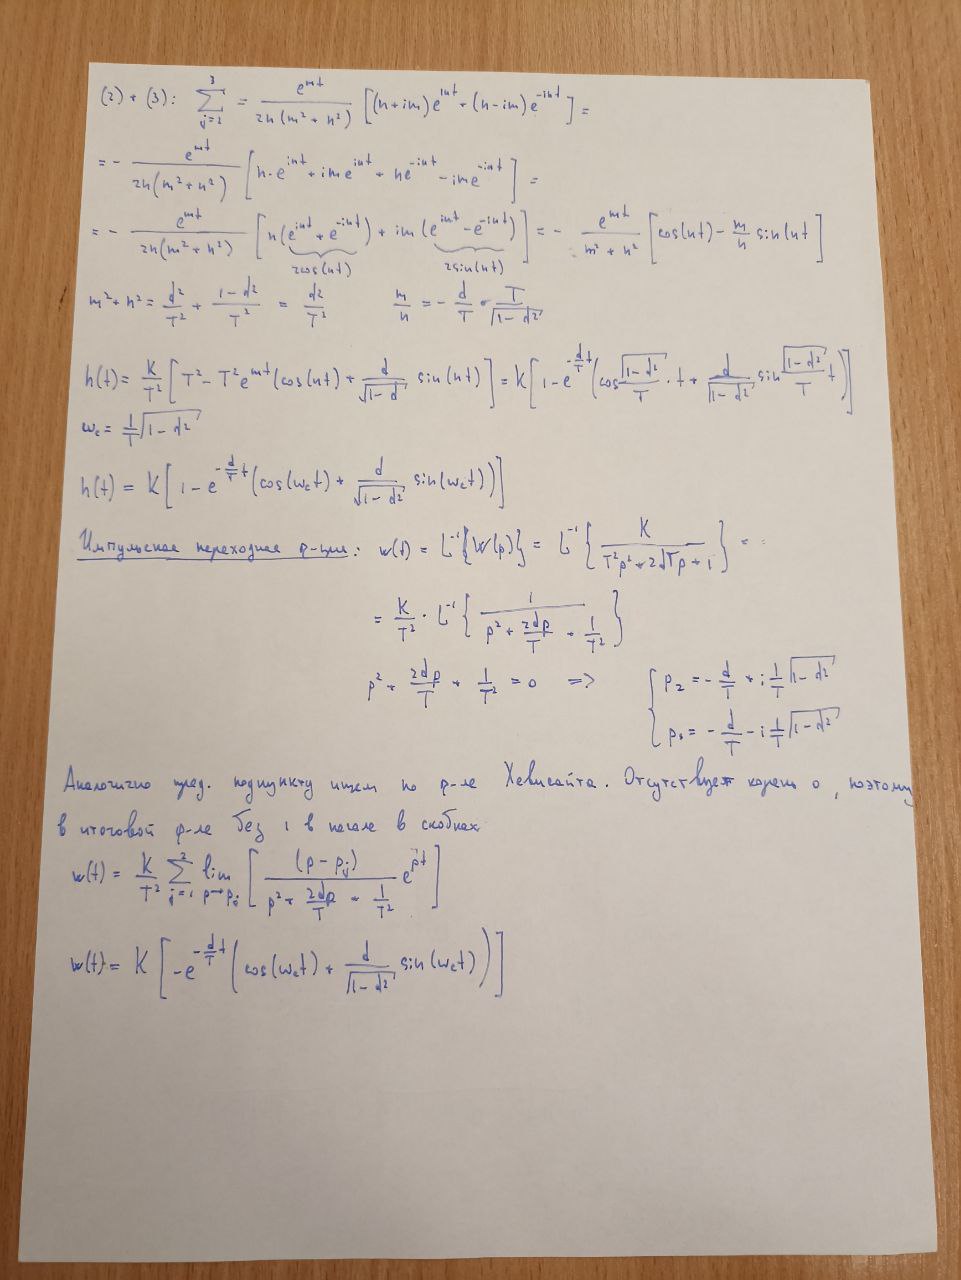 (2) + (3): \sum_{j=2}^{3} = \frac{e^{mt}}{2n(m^2+n^2)} [(n+im)e^{int} + (n-im)e^{-int}] =
= - \frac{e^{mt}}{2n(m^2+n^2)} [n \cdot e^{int} + ime^{int} + ne^{-int} - ime^{-int}] =
= - \frac{e^{mt}}{2n(m^2+n^2)} [n(e^{int} + e^{-int}) + im(e^{int} - e^{-int})] = - \frac{e^{mt}}{m^2+n^2} [cos(nt) - \frac{m}{n} sin(nt]
2cos(nt) 2sin(nt)
m^2+n^2 = \frac{d^2}{T^2} + \frac{1-d^2}{T^2} = \frac{d^2}{T^2} \frac{m}{n} = - \frac{d}{T} \cdot \frac{T}{\sqrt{1-d^2}}
h(t) = \frac{K}{T^2} [T^2 - T^2 e^{mt} (cos(nt) + \frac{d}{\sqrt{1-d}} sin(nt)] = K[1 - e^{-\frac{d}{T}t} (cos \frac{\sqrt{1-d^2}}{T} \cdot t + \frac{d}{\sqrt{1-d^2}} sin \frac{\sqrt{1-d^2}}{T} t)]
w_c = \frac{1}{T} \sqrt{1-d^2}
h(t) = K[1 - e^{-\frac{d}{T}t} (cos(w_c t) + \frac{d}{\sqrt{1-d^2}} sin(w_c t))]
Импульсная переходная ф-ция: w(t) = L^{-1}\{W(p)\} = L^{-1}\{\frac{K}{T^2p^2 + 2dTp + 1}\} =
= \frac{K}{T^2} \cdot L^{-1}\{\frac{1}{p^2 + \frac{2dp}{T} + \frac{1}{T^2}}\}
p^2 + \frac{2dp}{T} + \frac{1}{T^2} = 0 => { p_2 = - \frac{d}{T} + i \frac{1}{T} \sqrt{1-d^2}
p_1 = - \frac{d}{T} - i \frac{1}{T} \sqrt{1-d^2}
Аналогично пред. подпункту ищем по ф-ле Хевисайта. Отсутствует корень 0, поэтому
в итоговой ф-ле без 1 в начале в скобках
w(t) = \frac{K}{T^2} \sum_{j=1}^{2} lim_{p→p_j} [\frac{(p-p_j)}{p^2 + \frac{2dp}{T} + \frac{1}{T^2}} e^{pt}]
w(t) = K[-e^{-\frac{d}{T}t} (cos(w_c t) + \frac{d}{\sqrt{1-d^2}} sin(w_c t))]